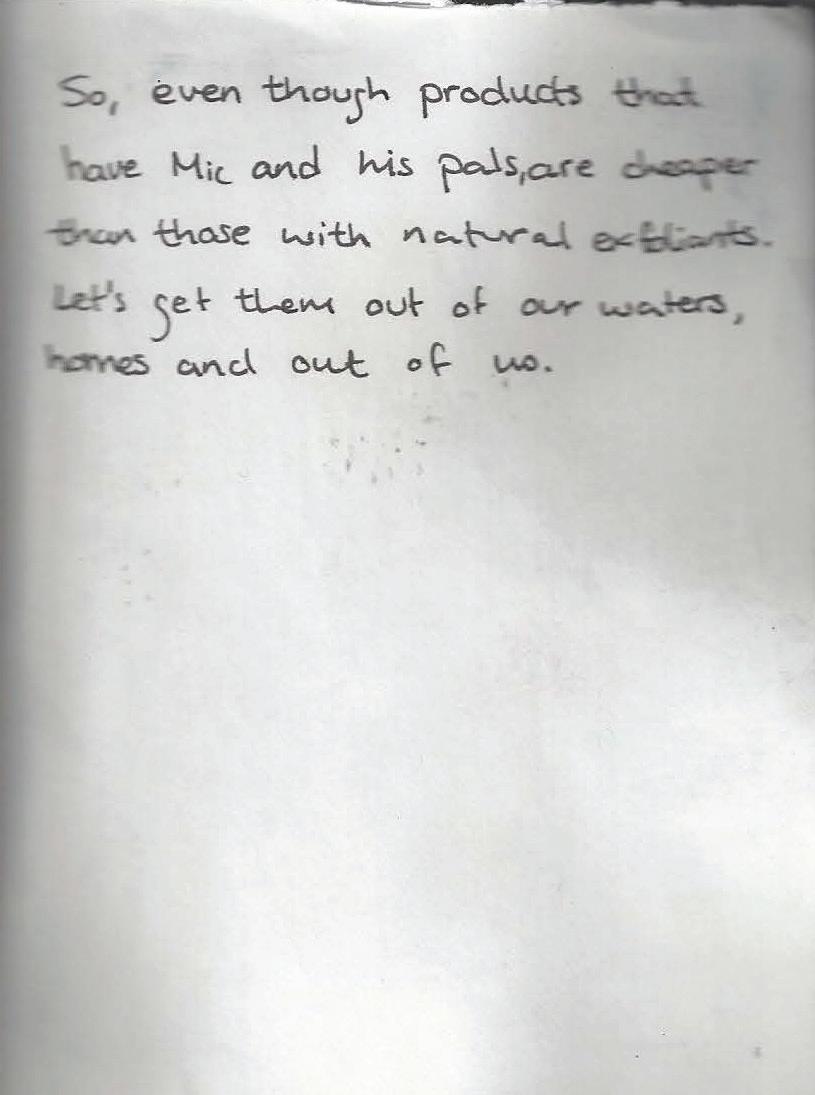 So, even though products that
have Mic and his pals, are cheaper
than those with natural exfliants.
Let's get them out of our waters,
homes and out of us.